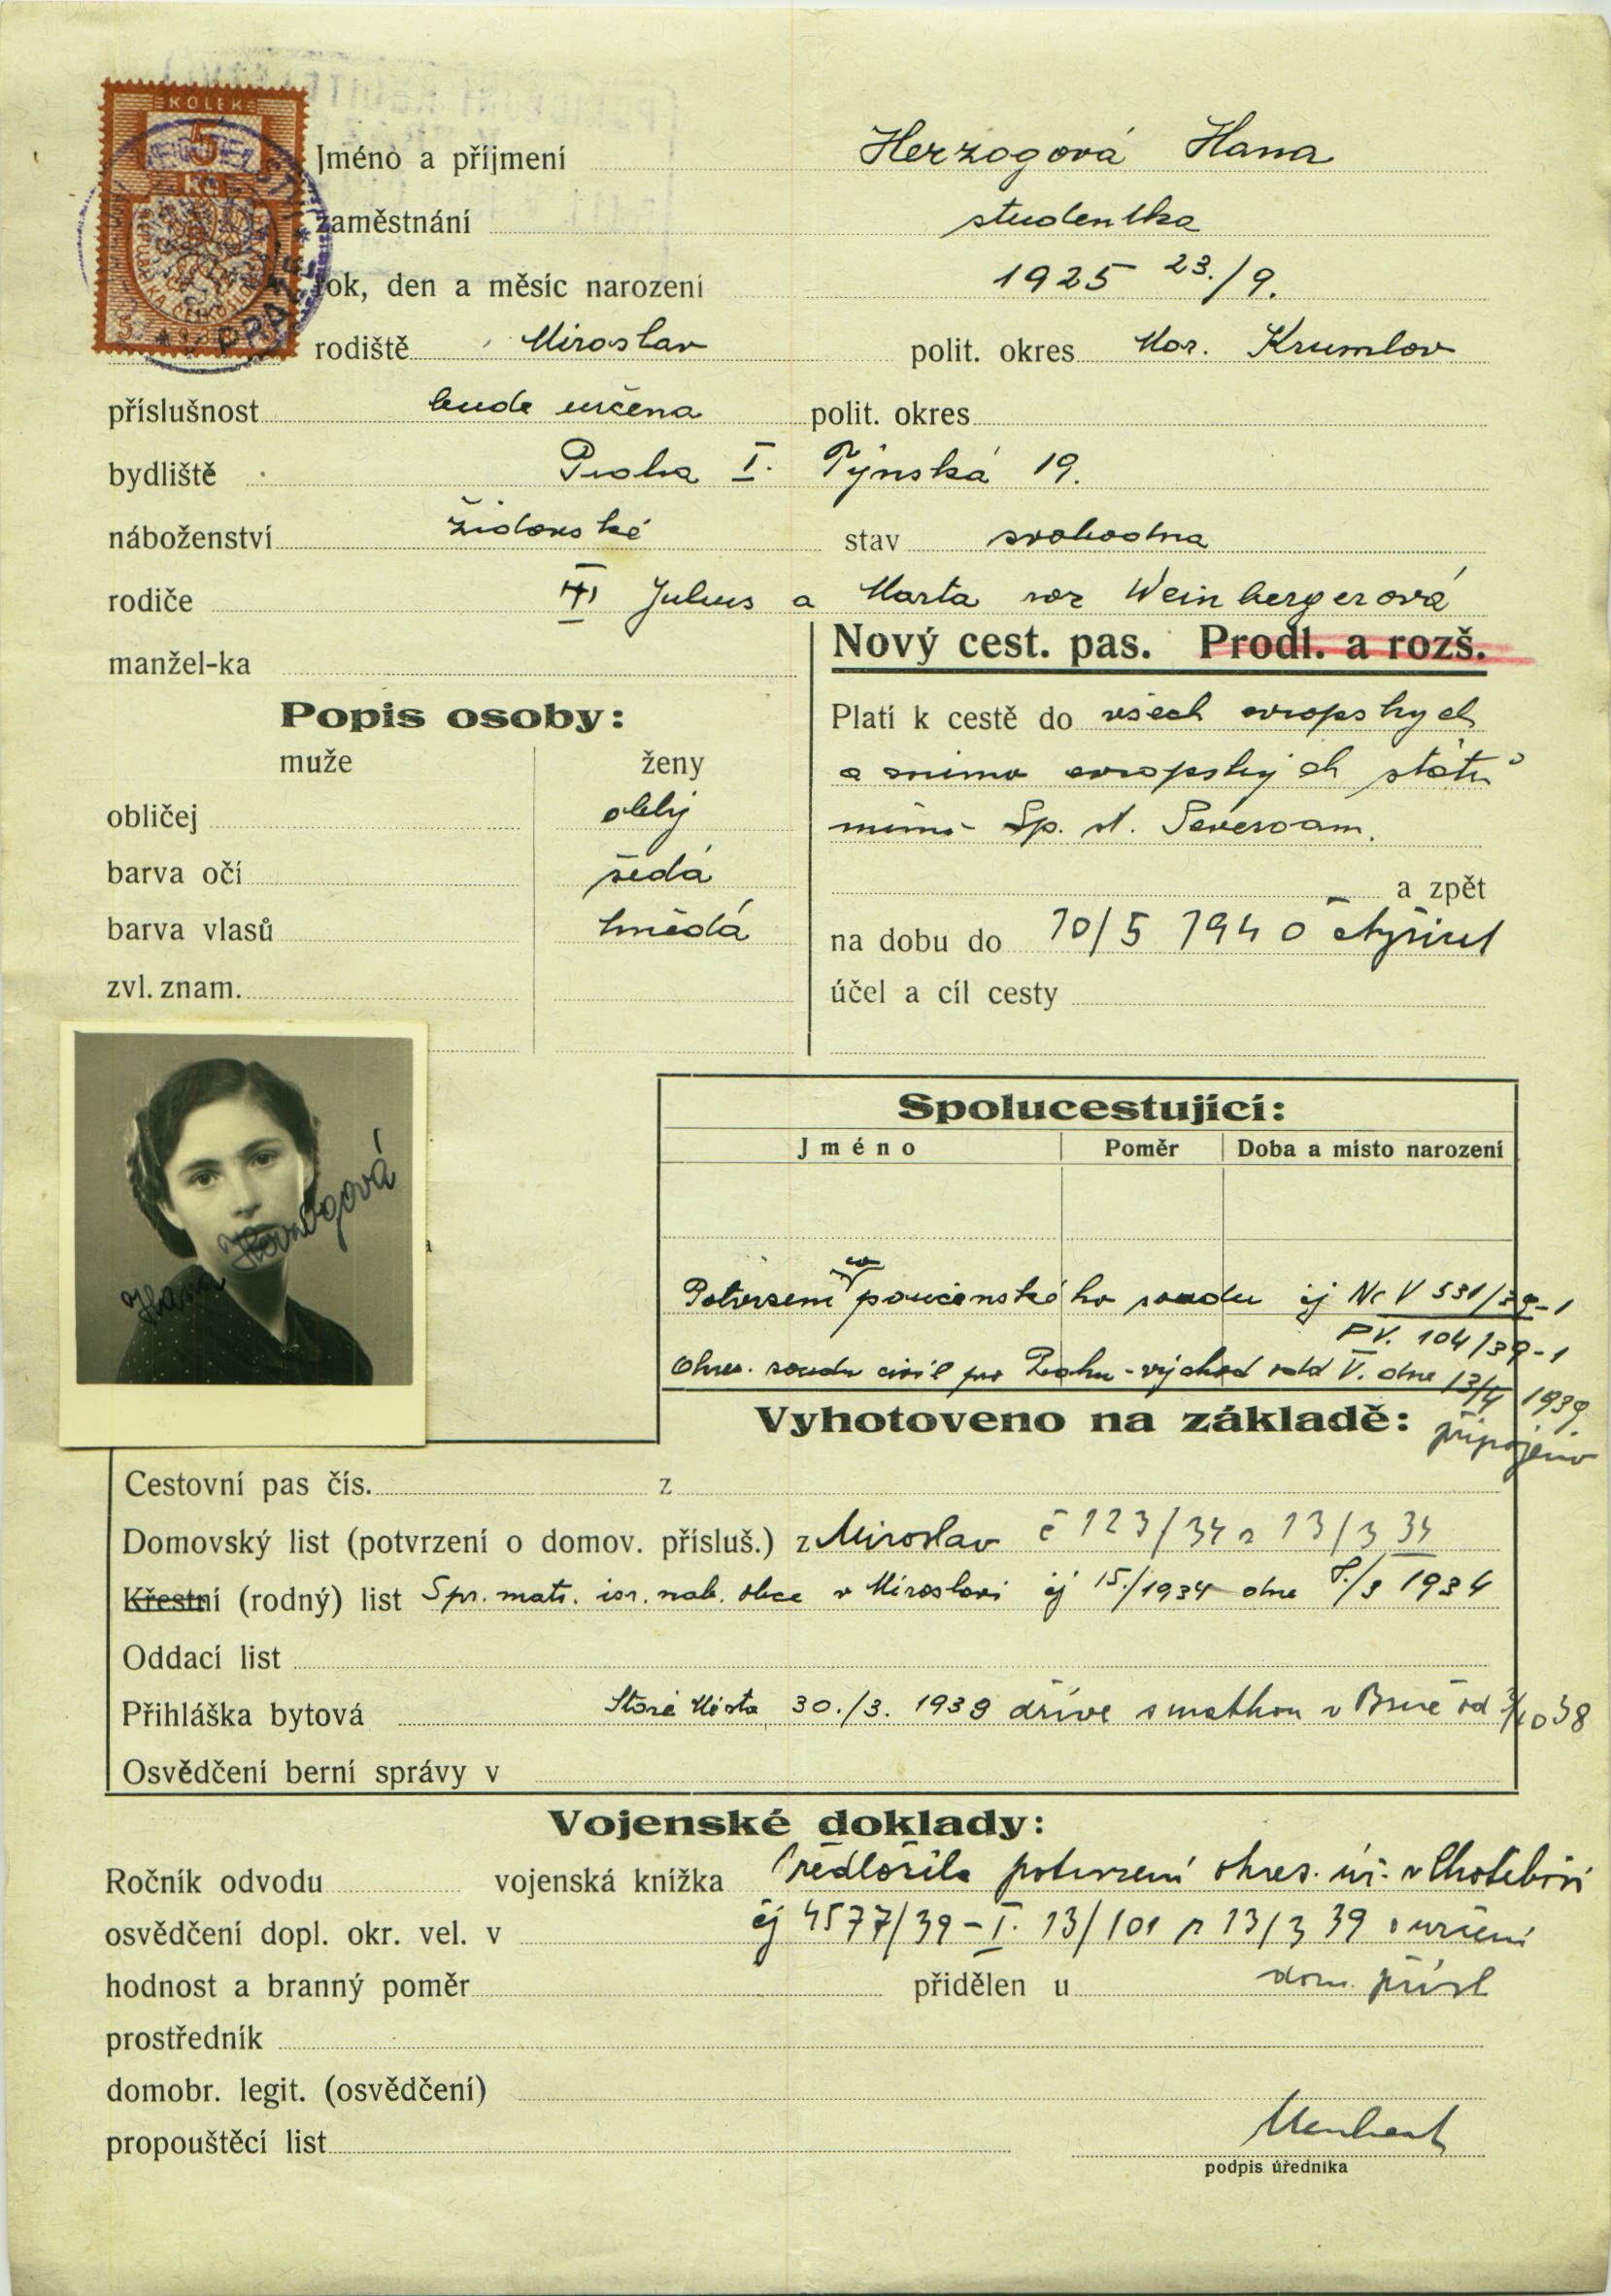 KOLEK
5
Kč
PRA
Jméno a příjmení Herzogová Hana
zaměstnání studentka
rok, den a měsíc narození 1925 23./9.
rodiště Miroslav polit. okres Mor. Krumlov
příslušnost bude určena polit. okres
bydliště Praha I. Týnská 19.
náboženství židovské stav svobodna
rodiče Julius a Marta roz Weinbergerová
manžel-ka
Nový cest. pas. Prodl. a rozš.
Popis osoby:
muže ženy
obličej oblý
barva očí šedá
barva vlasů hnědá
zvl. znam.
Platí k cestě do všech evropskych
a mimo evropských států
mimo Sp. st. Severoam.
a zpět
na dobu do 10/5 1940
účel a cíl cesty
Hana Herzogová
Spolucestující:
Jméno Poměr Doba a místo narození
Potvrzení poručenského soudu čj Nc V 531/39-1
PV. 104/39-1
Okres. soudu civil pro Prahu-východ odd V. dne 13/4 1939
připojeno
Vyhotoveno na základě:
Cestovní pas čís. z
Domovský list (potvrzení o domov. přísluš.) z Miroslav č 123/34 z 13/3 34
Křestní (rodný) list Spr. matr. isr. nab. obce v Miroslavi čj 15./1934 dne 8./3 1934
Oddací list
Přihláška bytová Staré Město 30./3. 1939 dříve s matkou v Brně od 38
Osvědčení berní správy v
Vojenské doklady:
Ročník odvodu vojenská knížka Předložila potvrzení okres. úř. v Chotěboři
osvědčení dopl. okr. vel. v čj 4577/39-I. 13/101 z 13/3 39 o určení
hodnost a branný poměr přidělen u dom. přísl
prostředník
domobr. legit. (osvědčení)
propouštěcí list
podpis úředníka